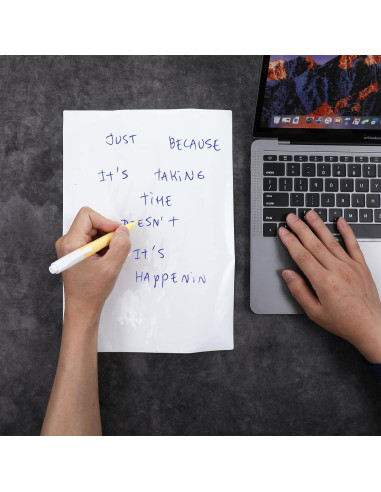 JUST BECAUSE
IT'S TAKING
TIME
DOESN'T
IT'S
HAPPENIN